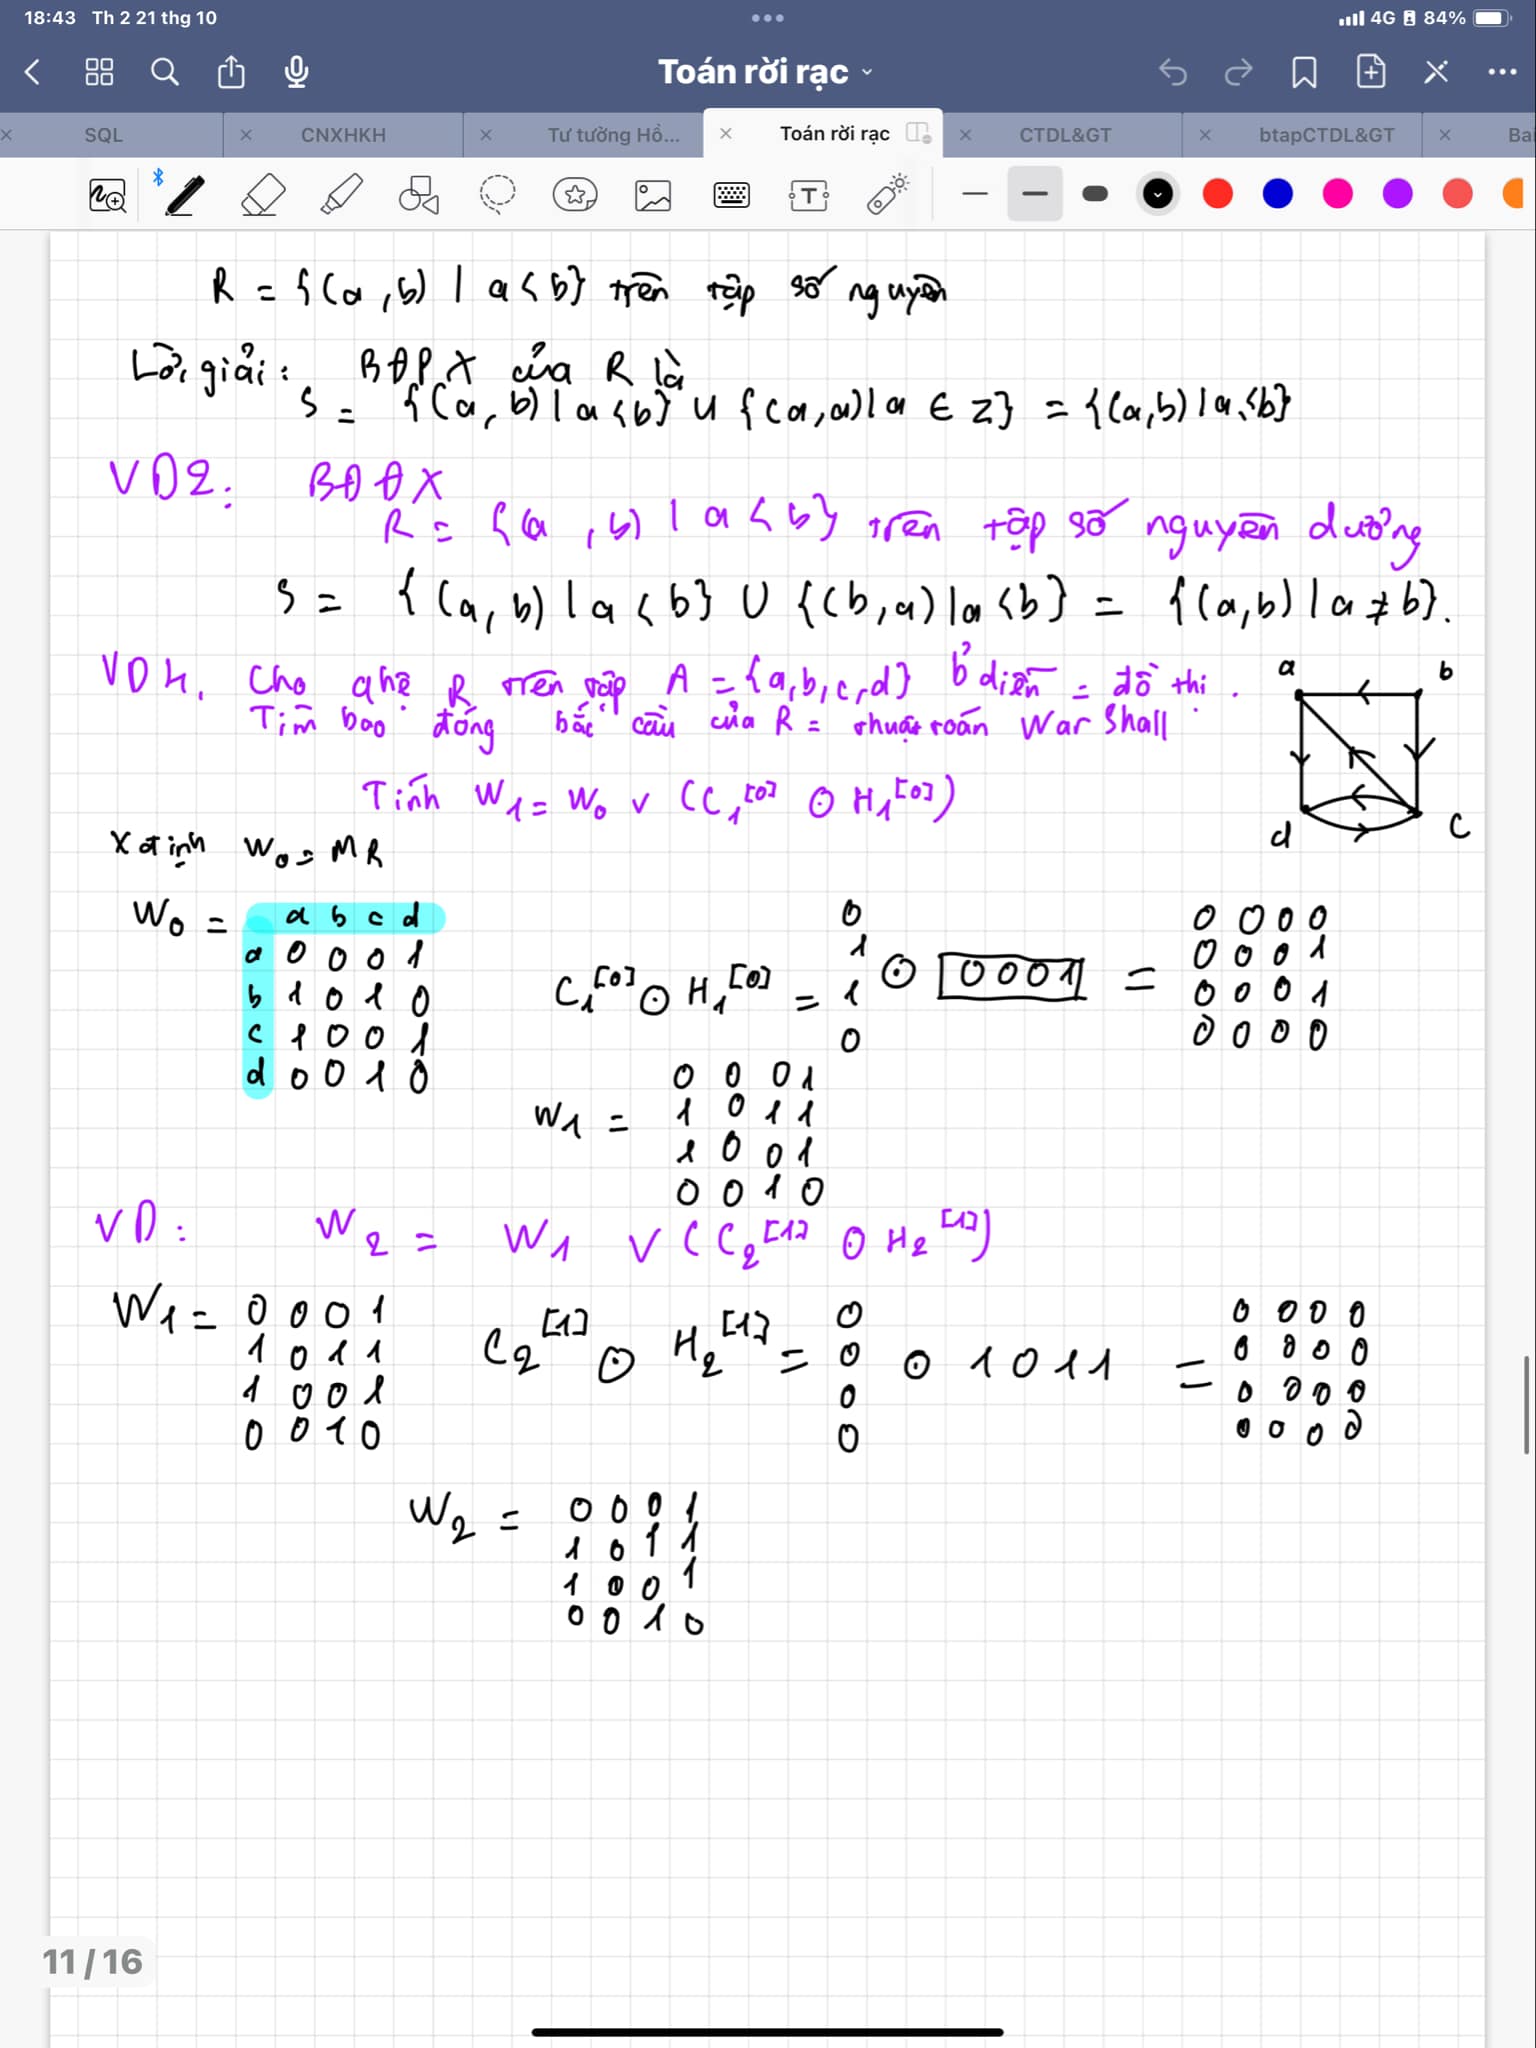 18:43 Th 2 21 thg 10
4G 84%
Toán rời rạc
SQL
CNXHKH
Tư tường Hồ...
Toán rời rạc
CTDL&GT
btapCTDL&GT
Bai
R = {(a,b) | a<b} trên tập số nguyên
Lời giải: BĐPX của R là
S = {(a,b) | a<b} ∪ {(a,a) | a ∈ Z} = {(a,b) | a≤b}
VD2: BĐĐX
R = {(a,b) | a<b} trên tập số nguyên dương
S = {(a,b) | a<b} ∪ {(b,a) | a<b} = {(a,b) | a≠b}.
VD4. Cho qhệ R trên tập A = {a,b,c,d} b' diễn = đồ thị.
Tìm bao đóng bắc cầu của R = thuật toán War Shall
a b
d c
Tính W₁ = W₀ ∨ (C₁[0] ⊙ H₁[0])
X định W₀ = MR
W₀ =
a b c d
a 0 0 0 1
b 1 0 1 0
c 1 0 0 1
d 0 0 1 0
C₁[0] ⊙ H₁[0] =
0
1
1
0
⊙ 0 0 0 1 =
0 0 0 0
0 0 0 1
0 0 0 1
0 0 0 0
W₁ =
0 0 0 1
1 0 1 1
1 0 0 1
0 0 1 0
VD: W₂ = W₁ ∨ (C₂[1] ⊙ H₂[1])
W₁ =
0 0 0 1
1 0 1 1
1 0 0 1
0 0 1 0
C₂[1] ⊙ H₂[1] =
0
0
0
0
⊙ 1 0 1 1 =
0 0 0 0
0 0 0 0
0 0 0 0
0 0 0 0
W₂ =
0 0 0 1
1 0 1 1
1 0 0 1
0 0 1 0
11 / 16